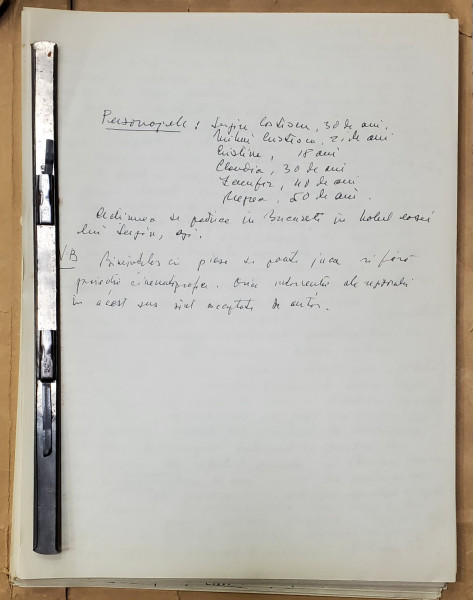 Personajele : Sergiu Cristian, 30 de ani.
Mihai Cristian, 21 de ani
Cristina, 18 ani
Claudia, 30 de ani
Zamfir, 40 de ani
50 de ani.
Acțiunea se petrece în București în holul casei
lui Sergiu, azi.
NB Bineînțeles că piesa se poate juca și fără
proiecții cinematografice. Orice intervenții ale regizorului
în acest sens sînt acceptate de autor.